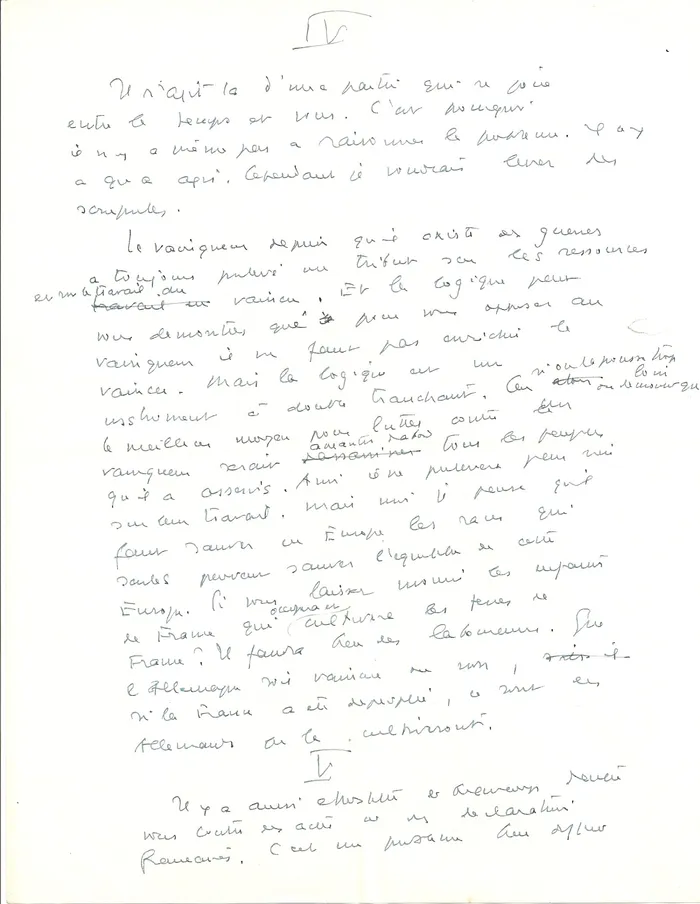 IV
Il s'agit là d'une partie qui se joue
entre le temps et vous. C'est pourquoi
il n'y a même pas à raisonner le problème. Il n'y
a qu'à agir. Cependant je voudrais lever des
scrupules.
Le vainqueur depuis qu'il existe des guerres
a toujours prélevé un tribut sur les ressources
et sur le travail du
travail du vaincu. Et la logique peut
vous démontrer que pour vous opposer au
vainqueur il ne faut pas enrichir le
vaincu. Mais la logique est un
si on la pousse trop loin
instrument à double tranchant. Car on démontre que
le meilleur moyen pour lutter contre un
vainqueur serait d'anéantir tous les peuples
qu'il a asservis. Ainsi il ne prélèvera plus rien
sur leur travail. Mais moi je pense qu'il
faut sauver en Europe les races qui
seules peuvent sauver l'équilibre de cette
Europe. Si vous laissez mourir les enfants
de France qui cultivera les terres de
France? Il faudra bien des laboureurs. Que
l'Allemagne soit vaincue ou non,
si la France a été dépeuplée, ce sont les
Allemands qui la cultiveront.
V
Il y a aussi
vous contre des actes et des déclarations
Françaises. C'est un problème bien